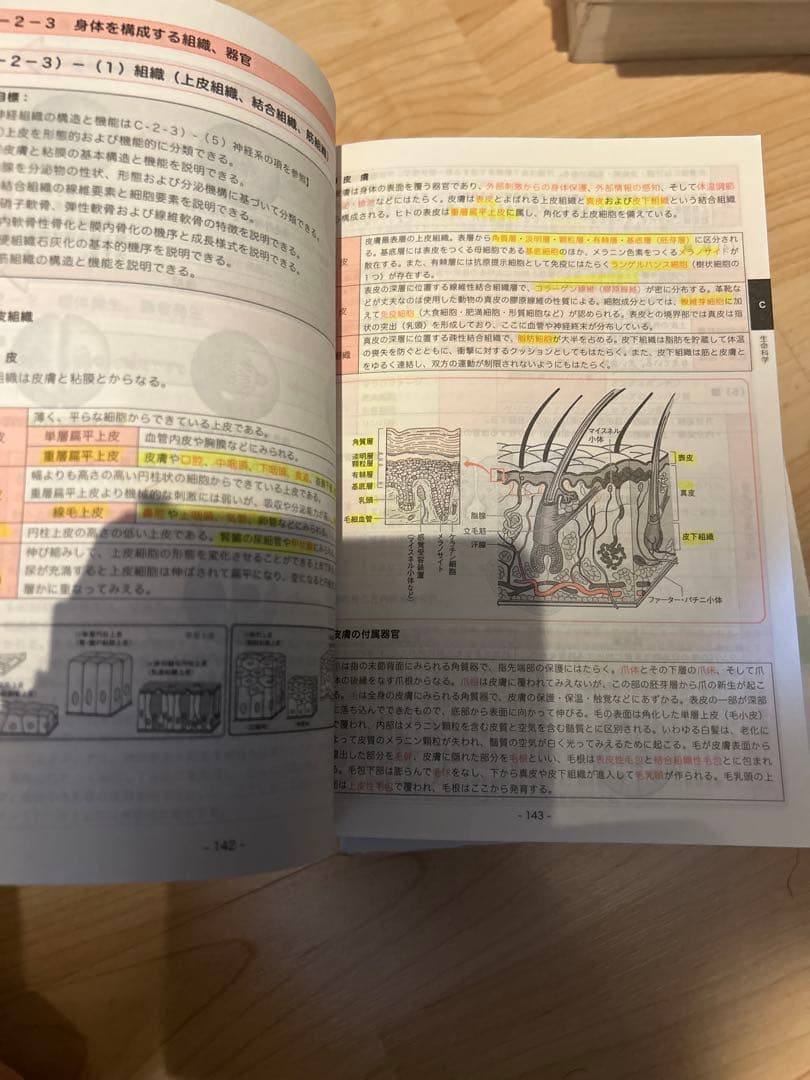 -2-3 身体を構成する組織、器官
-2-3)-(1)組織(上皮組織、結合組織、筋組織)
目標:
神経組織の構造と機能はC-2-3)-(5)神経系の項を参照】
上皮を形態的および機能的に分類できる。
皮膚と粘膜の基本構造と機能を説明できる。
腺を分泌物の性状、形態および分泌機構に基づいて分類できる。
結合組織の線維要素と細胞要素を説明できる。
硝子軟骨、弾性軟骨および線維軟骨の特徴を説明できる。
内軟骨性骨化と膜内骨化の機序と成長様式を説明できる。
硬組織石灰化の基本的機序を説明できる。
筋組織の構造と機能を説明できる。
皮組織
皮
組織は皮膚と粘膜とからなる。
薄く、平らな細胞からできている上皮である。
単層扁平上皮 血管内皮や胸膜などにみられる。
重層扁平上皮 皮膚や口腔、中咽頭、下咽頭、食道、
幅よりも高さの高い円柱状の細胞からできている上皮である。
重層扁平上皮より機械的な刺激には弱いが、吸収や分泌能力が
線毛上皮 鼻腔や上咽頭、気管、卵管などにみられる。
円柱上皮の高さの低い上皮である。腎臓の尿細管や
伸び縮みして、上皮細胞の形態を変化させることができる上皮
尿が充満すると上皮細胞は伸ばされて扁平になり、空になると円
層かに重なってみえる。
- 142 -
皮膚
皮膚は身体の表面を覆う器官であり、外部刺激からの身体保護、外部情報の感知、そして体温調節
・排泄などにはたらく。皮膚は表皮とよばれる上皮組織と真皮および皮下組織という結合組織
構成される。ヒトの表皮は重層扁平上皮に属し、角化する上皮細胞を備えている。
皮膚最表層の上皮組織。表層から角質層・淡明層・顆粒層・有棘層・基底層(胚芽層)に区分され
る。基底層には表皮をつくる母細胞である基底細胞のほか、メラニン色素をつくるメラノサイドが
散在する。また、有棘層には抗原提示細胞として免疫にはたらくランゲルハンス細胞(樹状細胞の
1つ)が存在する。
表皮の深層に位置する線維性結合組織層で、コラーゲン線維(膠原線維)が密に分布する。革靴な
どが丈夫なのは使用した動物の真皮の膠原線維の性質による。細胞成分としては、線維芽細胞に加
えて免疫細胞(大食細胞・肥満細胞・形質細胞など)が認められる。表皮との境界部では真皮は指
状の突出(乳頭)を形成しており、ここに血管や神経終末が分布している。
組織 真皮の深層に位置する疎性結合組織で、脂肪細胞が大半を占める。皮下組織は脂肪を貯蔵して体温
の喪失を防ぐとともに、衝撃に対するクッションとしてもはたらく。また、皮下組織は筋と皮膚と
をゆるく連結し、双方の運動が制限されないようにもはたらく。
C
生命科学
角質層
淡明層
顆粒層
有棘層
基底層
乳頭
毛細血管
感覚受容装置
(マイスネル小体など)
メラノサイト
ケラチン細胞
マイスネル
小体
脂腺
立毛筋
汗腺
表皮
真皮
皮下組織
ファーター・パチニ小体
皮膚の付属器官
爪は指の末節背面にみられる角質器で、指先端部の保護にはたらく。爪体とその下層の爪床、そして爪
体の後縁をなす爪根からなる。爪根は皮膚に覆われてみえないが、この部の胚芽層から爪の新生が起こ
る。毛は全身の皮膚にみられる角質器で、皮膚の保護・保温・触覚などにあずかる。表皮の一部が深部
に落ち込んでできたもので、底部から表面に向かって伸びる。毛の表面は角化した単層上皮(毛小皮)
で覆われ、内部はメラニン顆粒を含む皮質と空気を含む髄質とに区別される。いわゆる白髪は、老化に
よって皮質のメラニン顆粒が失われ、髄質の空気が白く光ってみえるために起こる。毛が皮膚表面から
露出した部分を毛幹、皮膚に隠れた部分を毛根といい、毛根は表皮性毛包と結合組織性毛包とに包まれ
る。毛包下部は膨らんで毛球をなし、下から真皮や皮下組織が進入して毛乳頭が作られる。毛乳頭の上
面は上皮性毛包で覆われ、毛根はここから発育する。
- 143 -